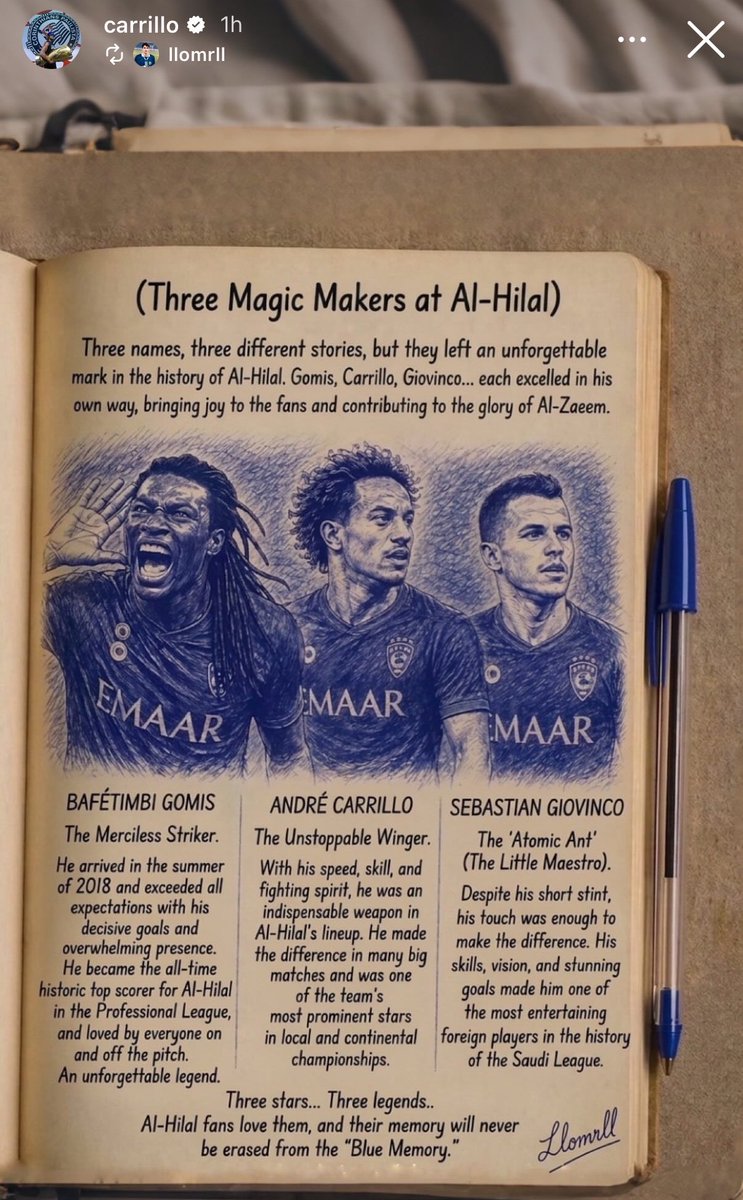 carrillo 1h
llomrll
(Three Magic Makers at Al-Hilal)
Three names, three different stories, but they left an unforgettable
mark in the history of Al-Hilal. Gomis, Carrillo, Giovinco... each excelled in his
own way, bringing joy to the fans and contributing to the glory of Al-Zaeem.
EMAAR
EMAAR
EMAAR
BAFÉTIMBI GOMIS
The Merciless Striker.
He arrived in the summer
of 2018 and exceeded all
expectations with his
decisive goals and
overwhelming presence.
He became the all-time
historic top scorer for Al-Hilal
in the Professional League,
and loved by everyone on
and off the pitch.
An unforgettable legend.
ANDRÉ CARRILLO
The Unstoppable Winger.
With his speed, skill, and
fighting spirit, he was an
indispensable weapon in
Al-Hilal's lineup. He made
the difference in many big
matches and was one
of the team's
most prominent stars
in local and continental
championships.
SEBASTIAN GIOVINCO
The 'Atomic Ant'
(The Little Maestro).
Despite his short stint,
his touch was enough to
make the difference. His
skills, vision, and stunning
goals made him one of
the most entertaining
foreign players in the history
of the Saudi League.
Three stars... Three legends..
Al-Hilal fans love them, and their memory will never
be erased from the “Blue Memory.”
Llomrll